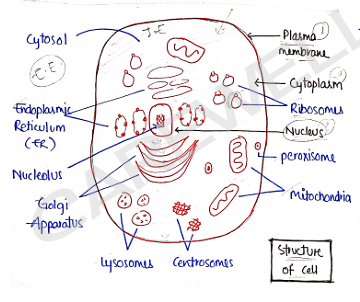 Cytosol
J·E
Plasma
membrane
E·E
Cytoplasm
Ribosomes
Endoplasmic
Reticulum
(ER)
Nucleus
peroxisome
Nucleolus
Mitochondria
Golgi
Apparatus
Lysosomes
Centrosomes
Structure
of cell